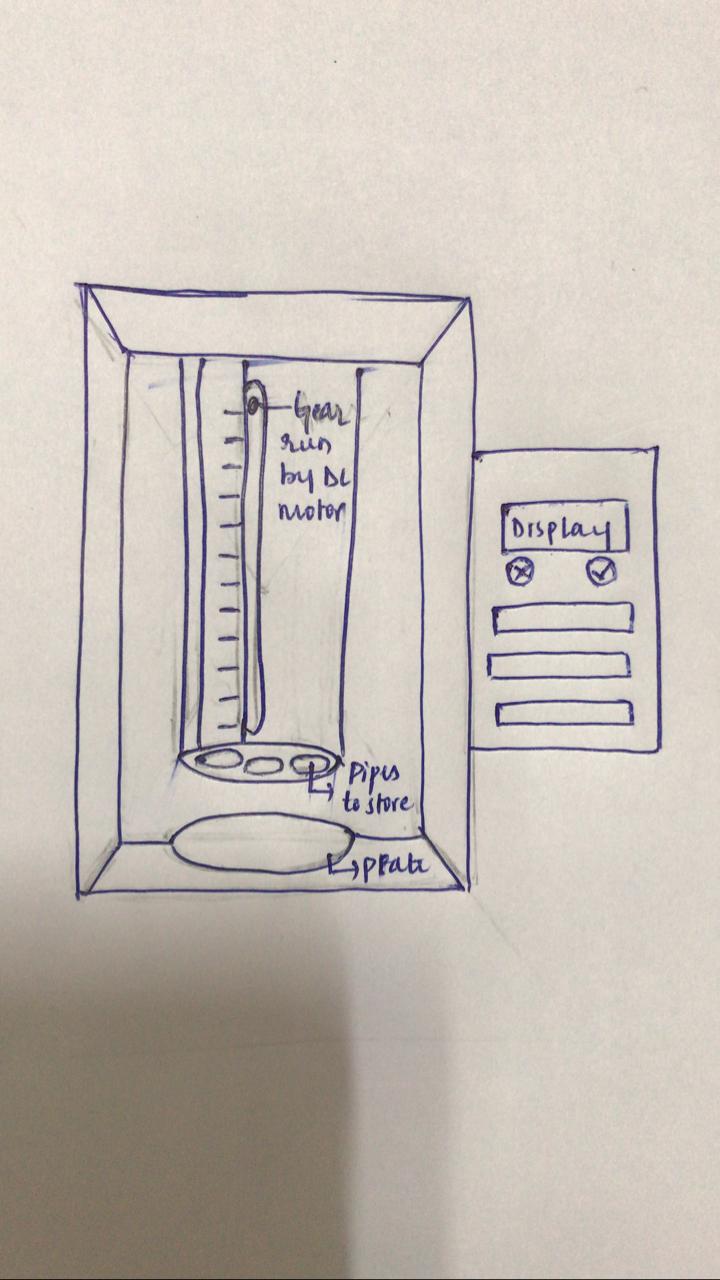 Gear
run
by DC
motor
Display
Pipes
to store
plate